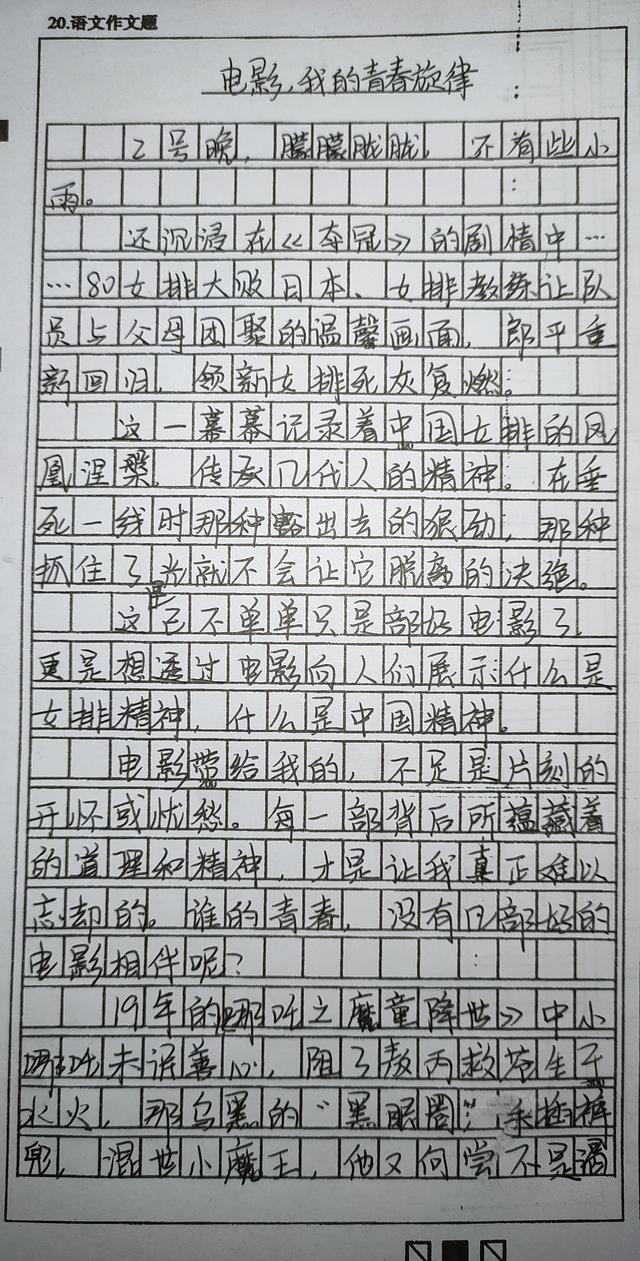 20.语文作文题
电影,我的青春旋律
2号晚,朦朦胧胧,还有些小
雨。
还沉浸在《夺冠》的剧情中…
…80女排大败日本、女排教练让队
员与父母团聚的温馨画面,郎平重
新回归,领新女排死灰复燃。
这一幕幕记录着中国女排的凤
凰涅槃,传承几代人的精神。在垂
死一线时那种豁出去的狠劲,那种
抓住了光就不会让它脱离的决绝。
是
这已不单单只是部好电影了,
更是想透过电影向人们展示什么是
女排精神,什么是中国精神。
电影带给我的,不足是片刻的
开怀或忧愁。每一部背后所蕴藏着
的道理和精神,才是让我真正难以
忘却的。谁的青春,没有几部好的
电影相伴呢?
19年的《哪吒之魔童降世》中小
哪吒未泯善心,阻了敖丙救苍生于
水火,那乌黑的“黑眼圈”,手插裤
兜,混世小魔王,他又何尝不是